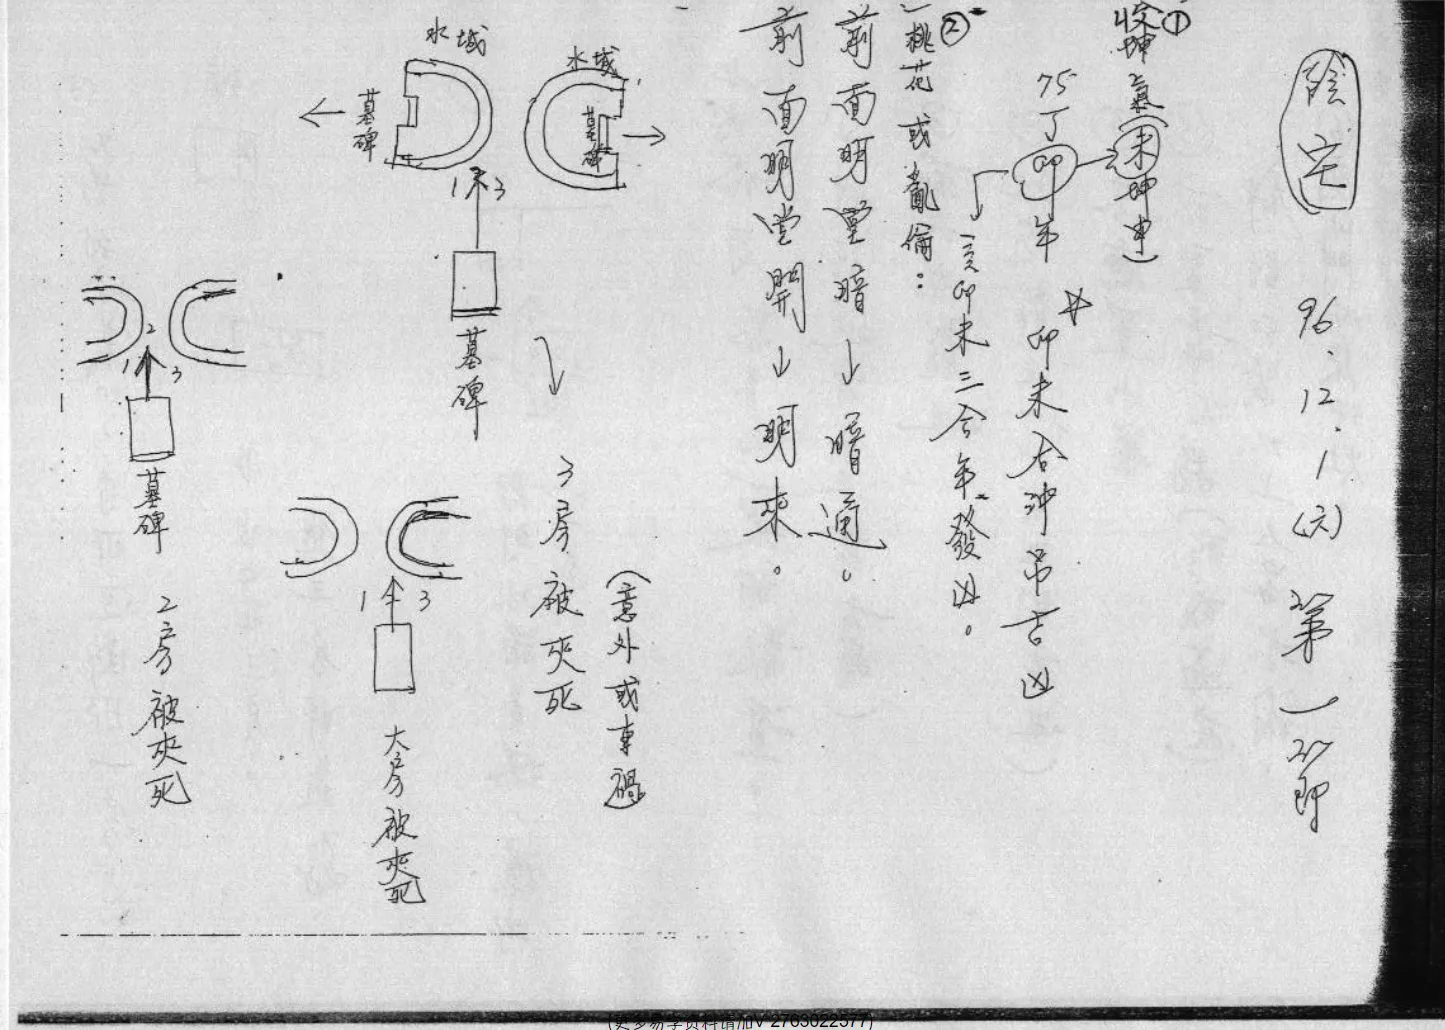 陰宅
96.12.1(六) 第一節
①
收坤氣(未坤申)
75丁卯年
卯未合沖吊吉凶
亥卯未三合年發凶。
②
桃花或亂倫:
前面明堂暗↓暗通。
前面明堂開↓明來。
水域
墓碑
水域
墓碑
1 3
墓碑
3房被夾死
(意外或車禍)
2
1 3
墓碑
2房被夾死
1 3
大房被夾死
(更多易学资料请加V 2763622377)